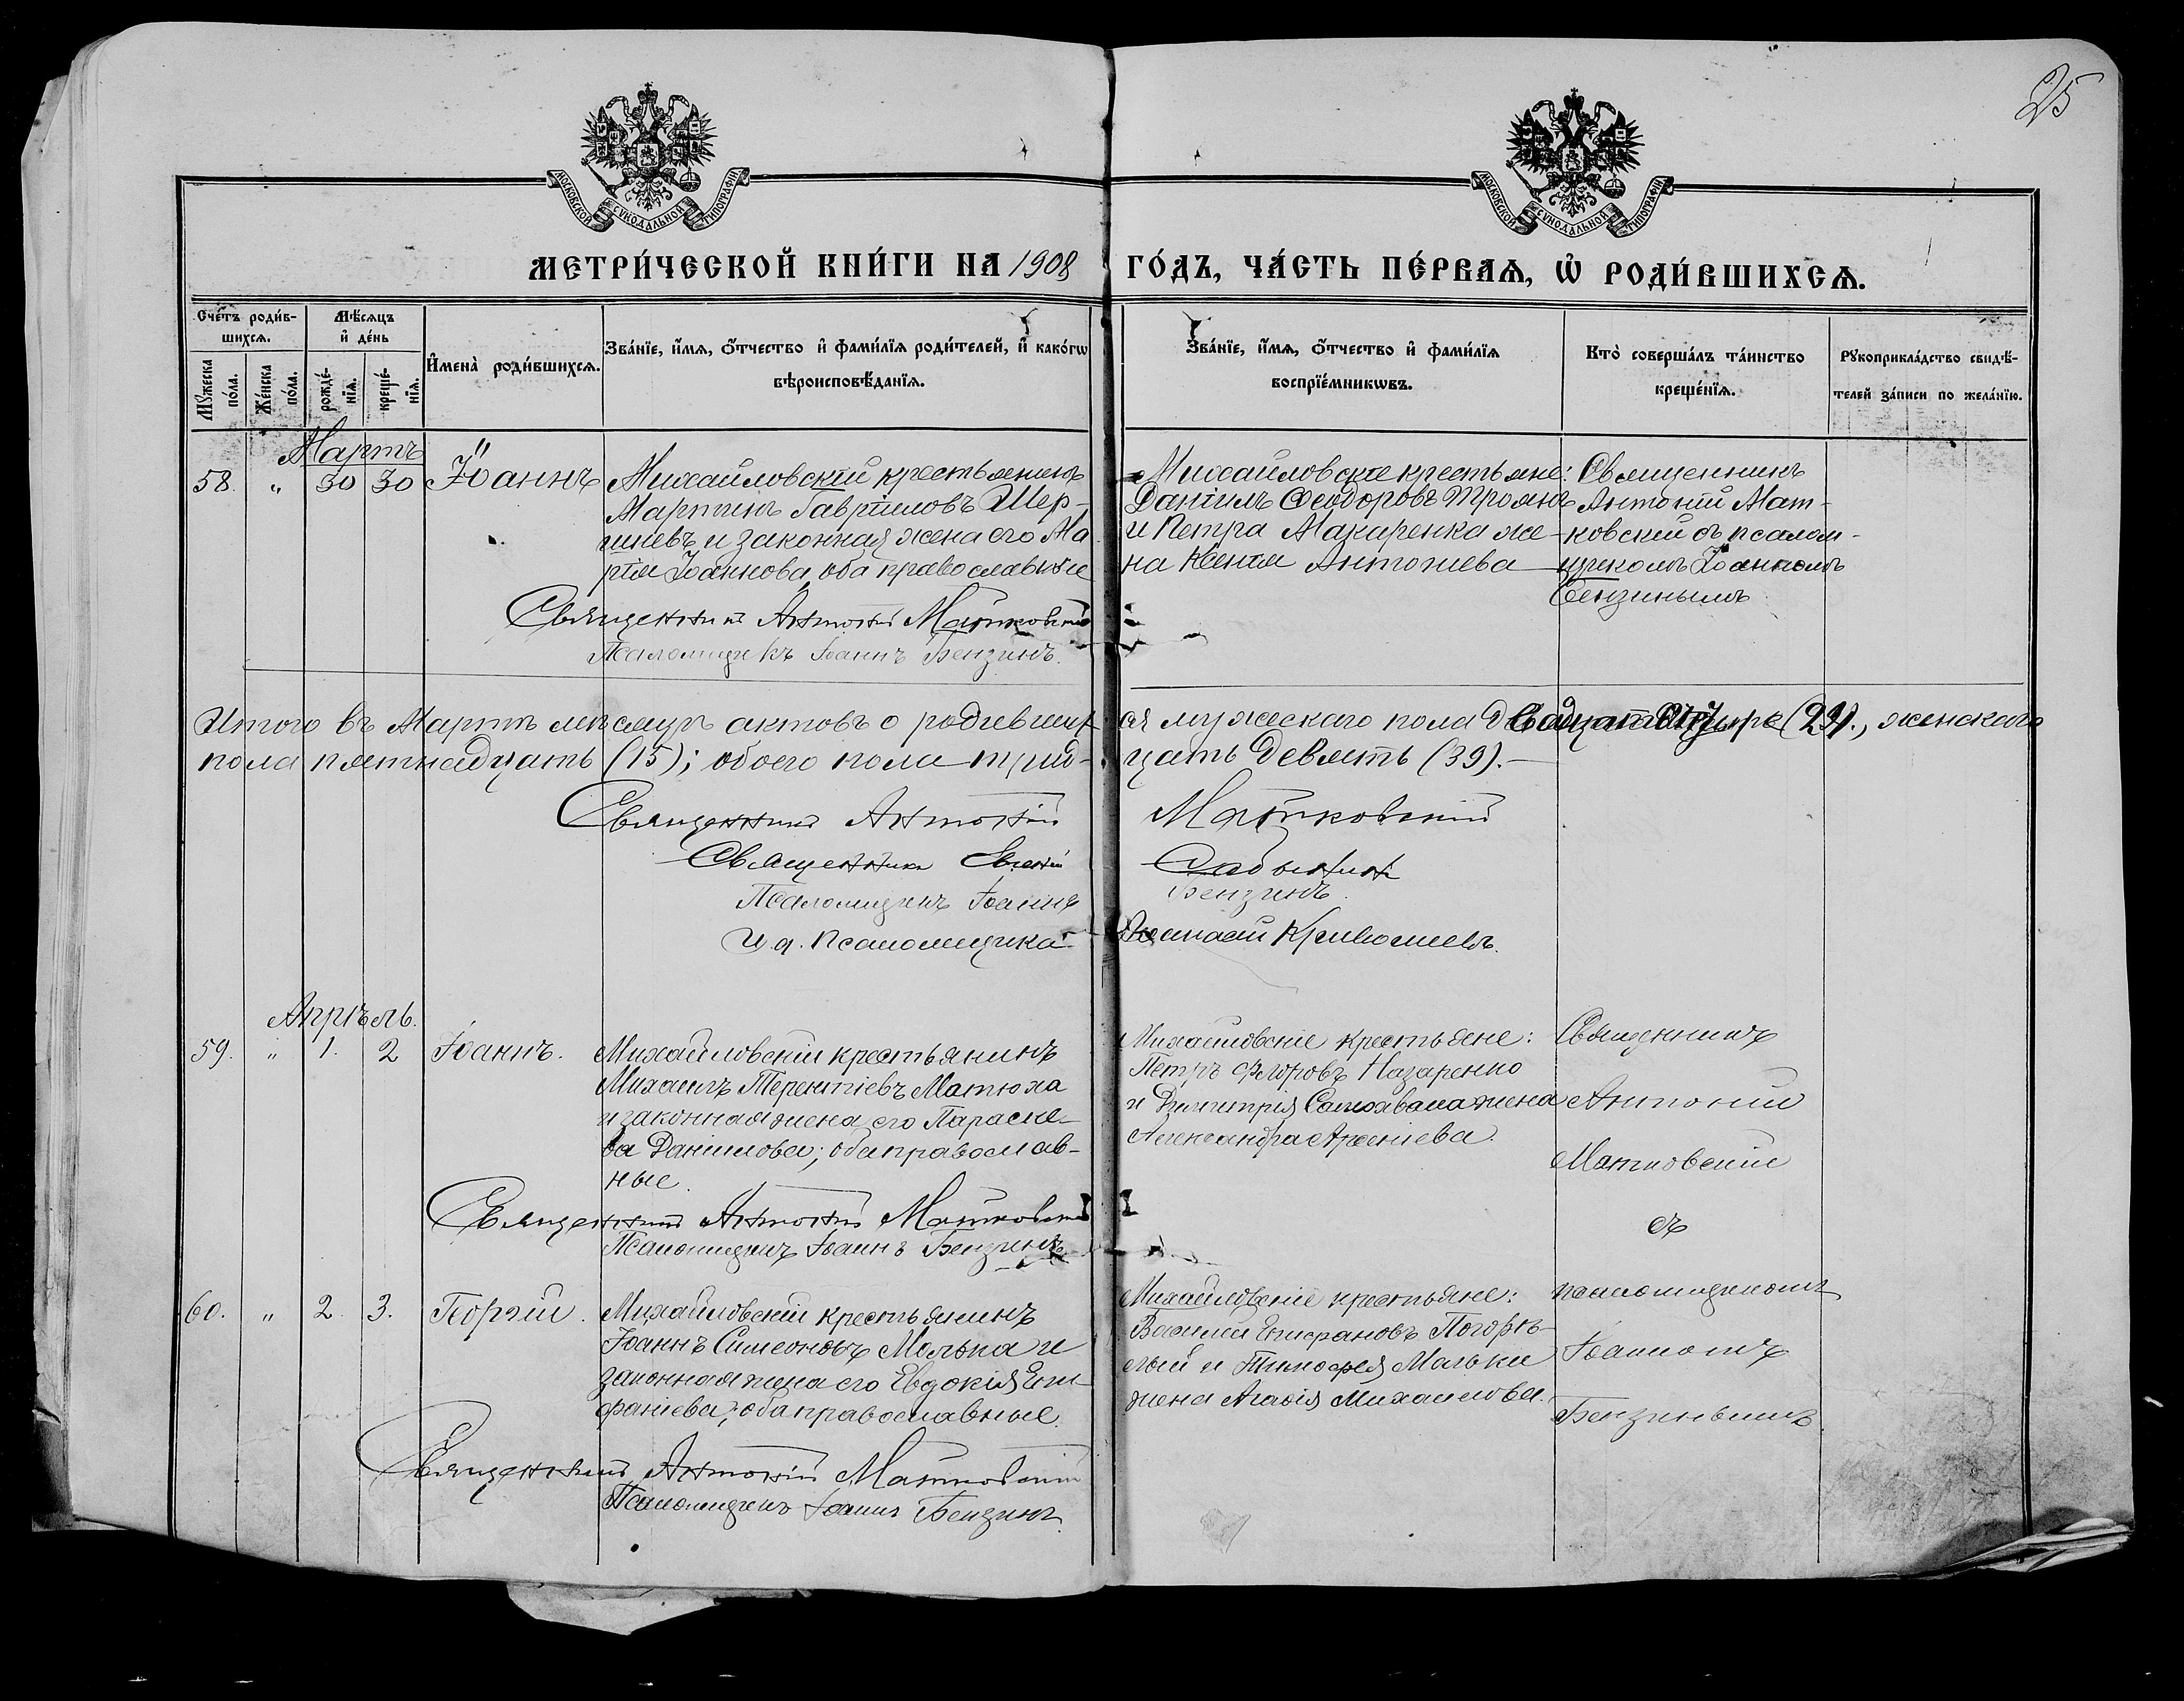 25
МОСКОВСКОЙ СѴНОДАЛЬНОЙ ТИПОГРАФІИ
МОСКОВСКОЙ СѴНОДАЛЬНОЙ ТИПОГРАФІИ
МЕТРИ́ЧЕСКОЙ КНИ́ГИ НА 1908 ГО́ДЪ, ЧА́СТЬ ПЕ́РВАѦ, Ѡ҆ РОДИ́ВШИХСѦ.
Сче́тъ роди́в-
шихсѧ.
Мѣ́сѧцъ
и҆ де́нь
Мꙋжеска по́ла.
Же́нска по́ла.
рожде́-
нїѧ.
креще́-
нїѧ.
И҆мена̀ роди́вшихсѧ.
Зва́нїе, и҆́мѧ, ѻ҆́тчество и҆ фами́лїѧ роди́телей, и҆ како́гѡ
вѣроисповѣ́данїѧ.
Зва́нїе, и҆́мѧ, ѻ҆́тчество и҆ фами́лїѧ
воспрїе́мникѡвъ.
Кто̀ соверша́лъ та́инство
креще́нїѧ.
Рꙋкоприкла́дство свидѣ́-
телей за́писи по жела́нїю.
Мартъ
58. " 30 30 Іоаннъ
Михайловскій крестьянинъ
Мартинъ Гавріиловъ Шер-
шневъ и законная жена его Ма
рія Іоаннова, оба православные
Священникъ Антоній Матковскій
Псаломщикъ Іоаннъ Бензинъ.
Михайловскіе крестьяне:
Даніилъ Ѳеодоровъ Троянъ
и Петра Макаренка же-
на Ксенія Антоніева
Священникъ
Антоній Мат-
ковскій съ псалом-
щикомъ Іоанномъ
Бензинымъ
Итого въ Мартѣ мѣсяцѣ актовъ о родившихся мужескаго пола двадцать четыре (24)., женскаго
пола пятнадцать (15); обоего пола трид- цать девять (39).—
Священникъ Антоній Матковскій
Священникъ Евгеній
Псаломщикъ Іоаннъ Бензинъ.
И. д. псаломщика
Апрѣль.
59. " 1. 2 Іоаннъ.
Михайловскій крестьянинъ
Михаилъ Терентіевъ Матюха
и законная жена его Параске-
ва Даніилова; оба православ-
ные.
Священникъ Антоній Матковскій
Псаломщикъ Іоаннъ Бензинъ
Михайловскіе крестьяне:
Петръ Флоровъ Назаренко
и Димитрія Самохвала жена
Александра Арсеніева.
Священникъ
Антоній
Матковскій
съ
псаломщикомъ
Іоанномъ
Бензинымъ
60. " 2. 3. Георгій.
Михайловскій крестьянинъ
Іоаннъ Симеоновъ Малька и
законная жена его Евдокія Епи-
фаніева; оба православные.
Священникъ Антоній Матковскій
Псаломщикъ Іоаннъ Бензинъ
Михайловскіе крестьяне:
Василій Епифановъ Погорѣ-
лый и Тимоѳея Мальки
жена Агаѳія Михаилова.